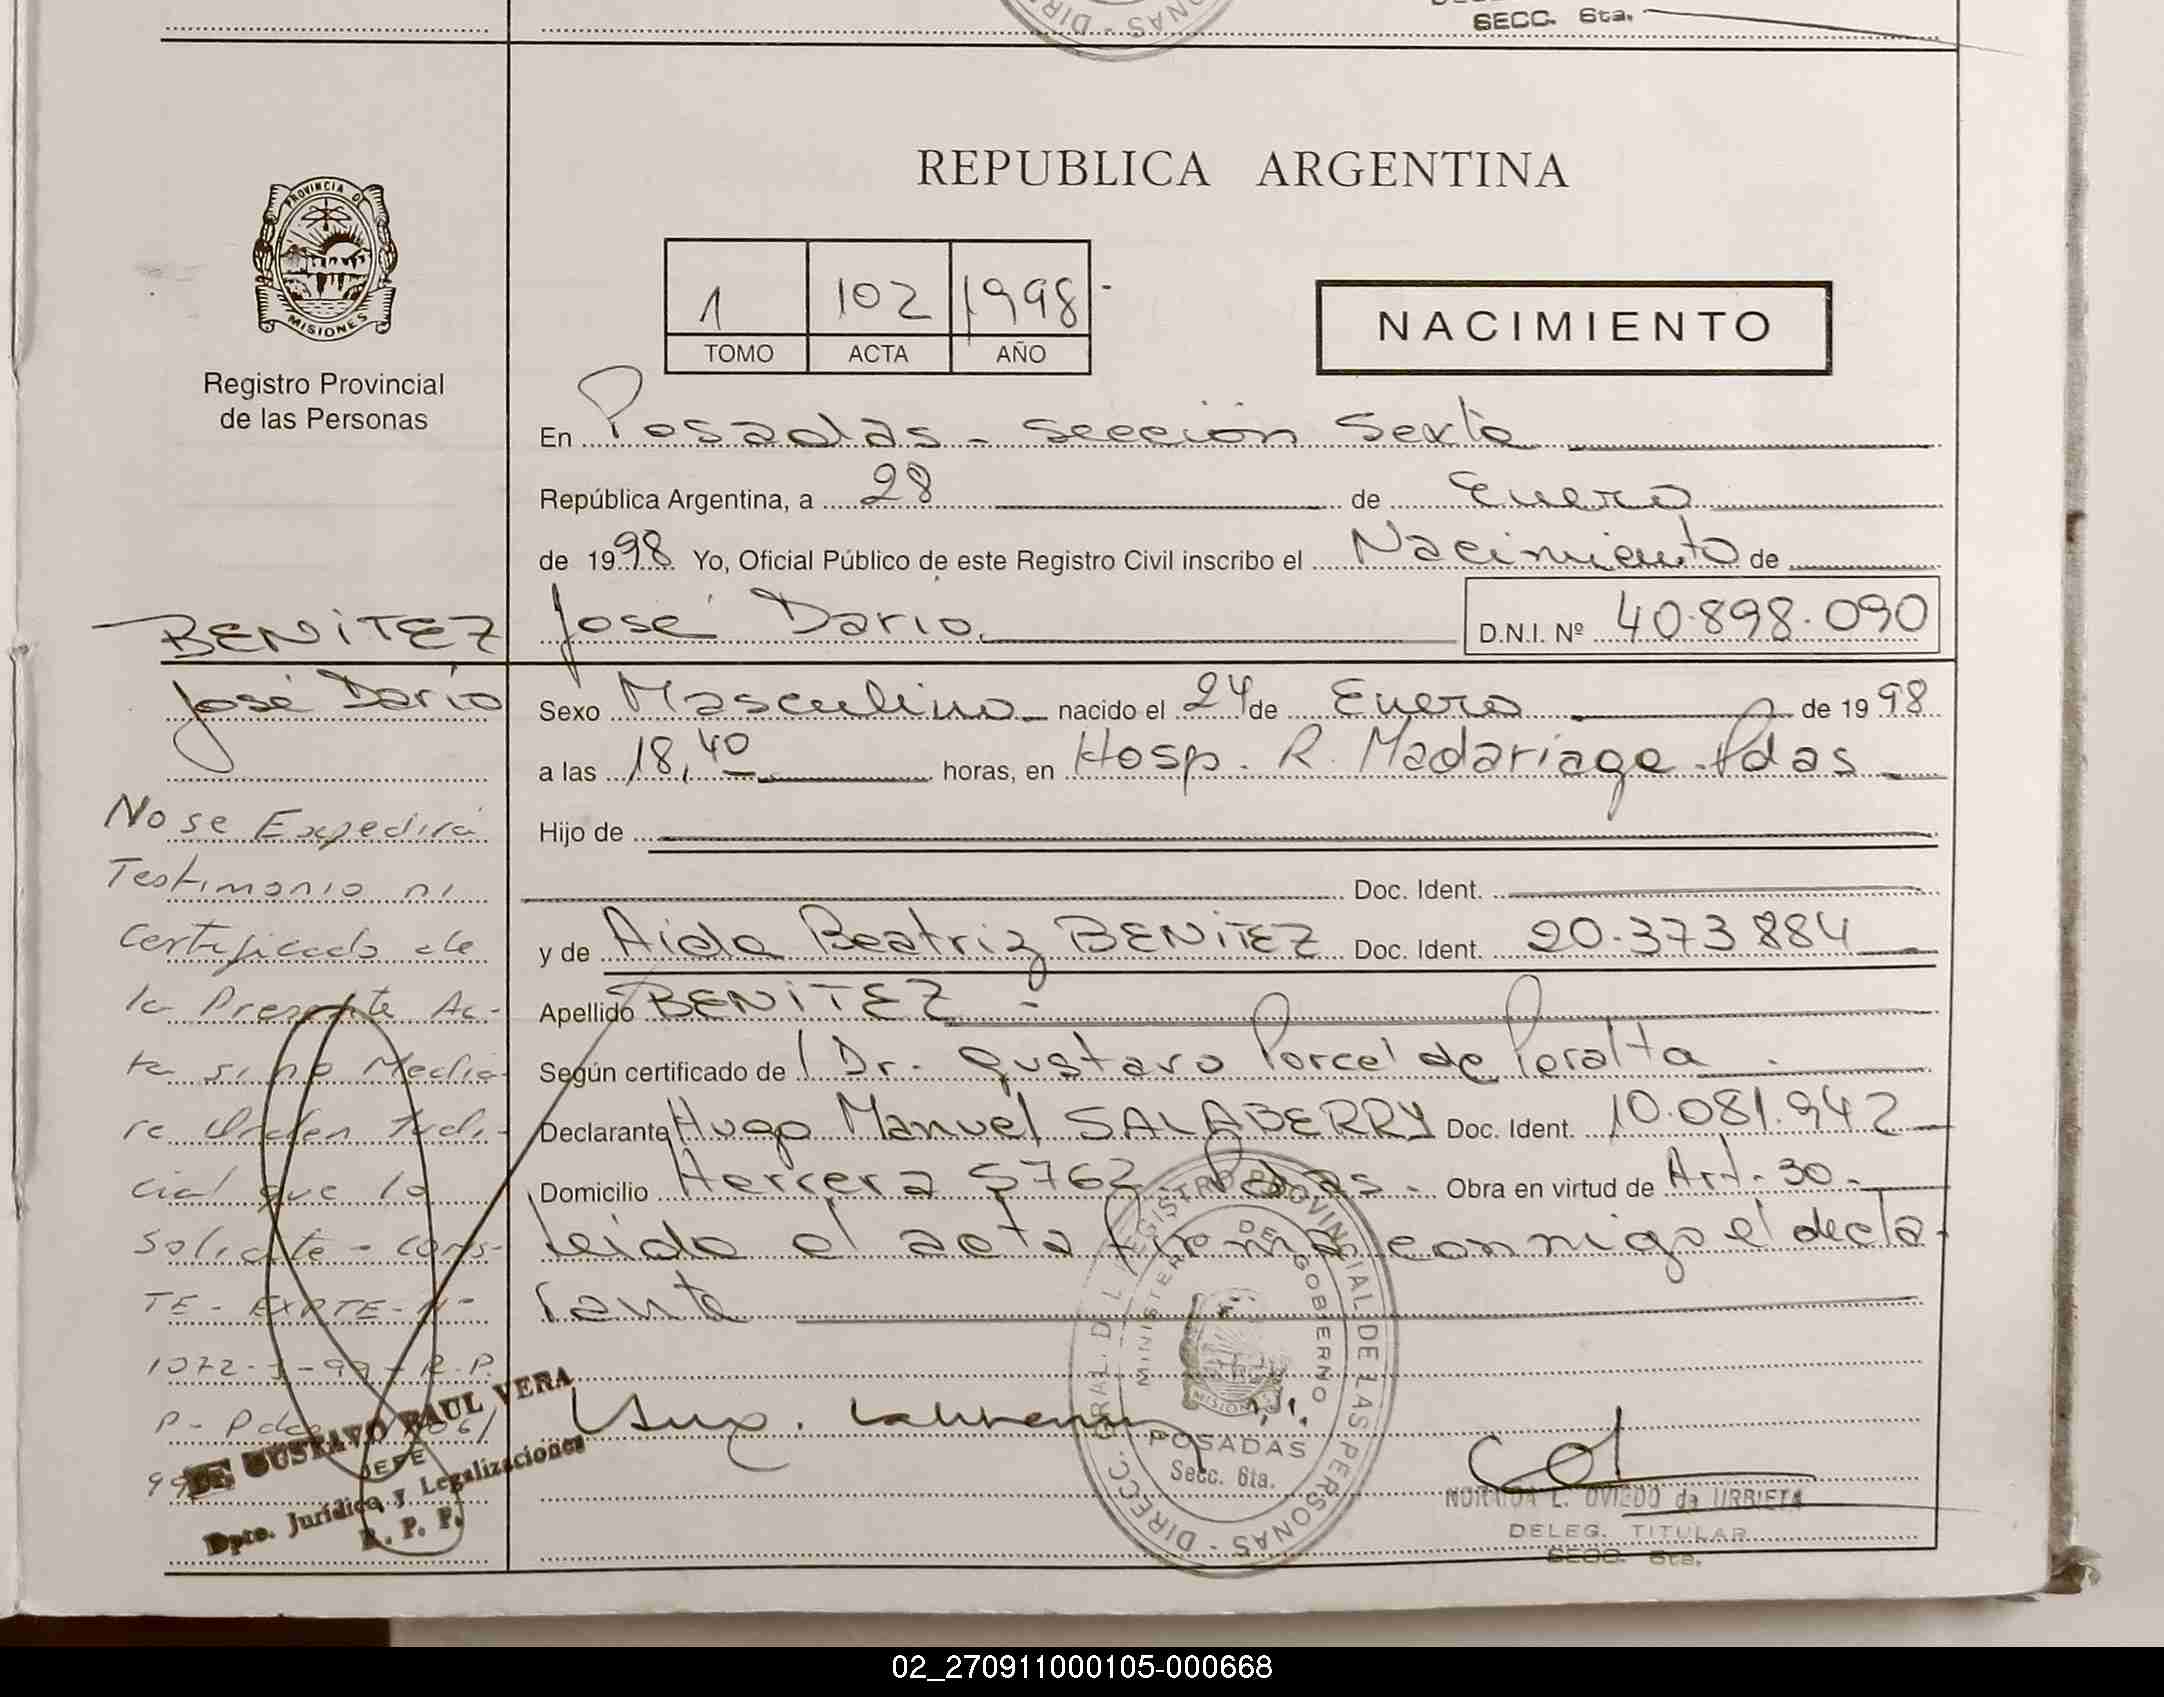 SECC. 6ta.
DIRECC. - PERSONAS
REPUBLICA ARGENTINA
PROVINCIA DE MISIONES
Registro Provincial
de las Personas
1 102 1998
TOMO ACTA AÑO
NACIMIENTO
En Posadas - Sección Sexta
República Argentina, a 28 de Enero
de 1998 Yo, Oficial Público de este Registro Civil inscribo el Nacimiento de
José Darío D.N.I. Nº 40.898.090
BENÍTEZ
José Darío
Sexo Masculino nacido el 24 de Enero de 1998
a las 18,40 horas, en Hosp. R. Madariaga - Pdas
Hijo de
Doc. Ident.
y de Aida Beatriz BENÍTEZ Doc. Ident. 20.373884
Apellido BENÍTEZ -
Según certificado de Dr. Gustavo Porcel de Peralta
Declarante Hugo Manuel SALABERRY Doc. Ident. 10.081.942
Domicilio Herrera 5762 Pdas. - Obra en virtud de Art. 30 -
Leida el acta firma conmigo el decla-
rante
No se Expedirá
Testimonio ni
Certificado de
la Presente Ac-
ta si no Media-
re Orden Judi-
cial que lo
Solicite - CONS-
TE - EXPTE - Nº
R.P.
P - Pdas
GUSTAVO RAUL VERA
JEFE
Dpto. Jurídico y Legalizaciones
R. P. P.
DIRECC. GRAL. DEL REGISTRO PROVINCIAL DE LAS PERSONAS
MINISTERIO DE GOBIERNO
MISIONES
POSADAS
Secc. 6ta.
NORAIDA L. OVIEDO de URBIETA
DELEG. TITULAR
SECC. 6ta.
02_270911000105-000668